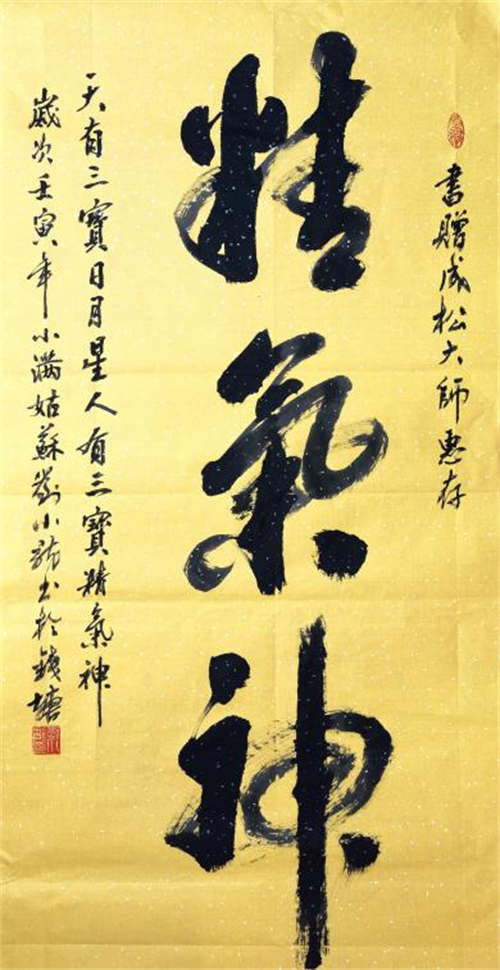 書贈成松大師惠存
精氣神
天有三寶日月星人有三寶精氣神
歲次壬寅年小滿姑蘇劉小龍書於錢塘